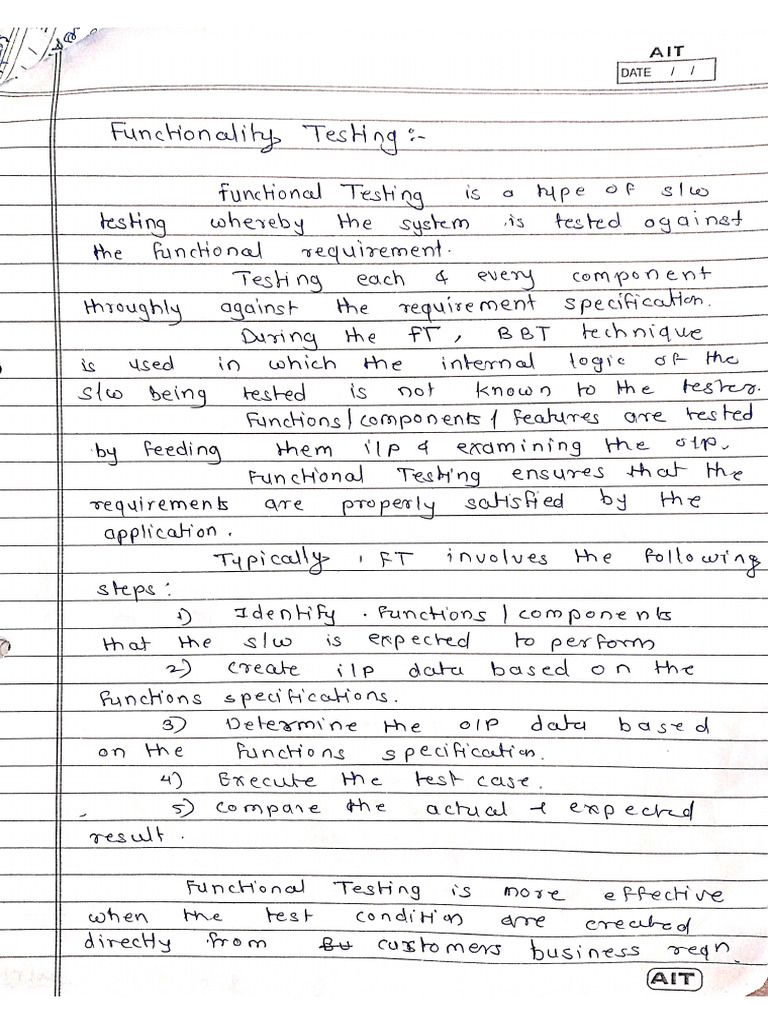 AIT
DATE / /
Functionality Testing :-
Functional Testing is a type of s/w
testing whereby the system is tested against
the functional requirement.
Testing each & every component
throughly against the requirement specification.
During the FT, BBT technique
is used in which the internal logic of the
s/w being tested is not known to the tester.
Functions/components/features are tested
by feeding them i/p & examining the o/p.
Functional Testing ensures that the
requirements are properly satisfied by the
application.
Typically, FT involves the following
steps:
1) Identify functions/components
that the s/w is expected to perform
2) create i/p data based on the
functions specifications.
3) Determine the o/p data based
on the functions specification.
4) Execute the test case.
5) compare the actual & expected
result.
Functional Testing is more effective
when the test condition are created
directly from customers business reqn.
AIT